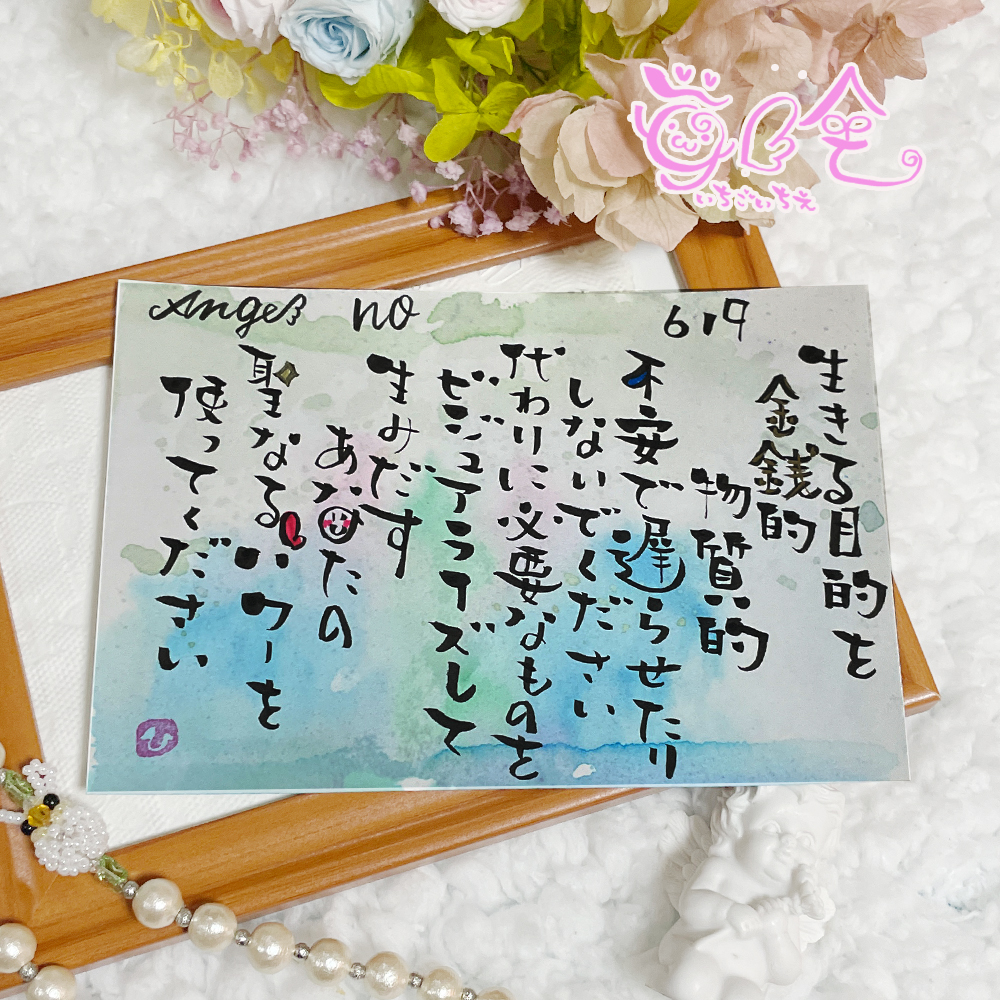 Angel no 619
生きる目的を
金銭的
物質的
不安で遅らせたり
しないでください
代わりに必要なものを
ビジュアライズして
生みだす
あなたの
聖なるパワーを
使ってください
いちごいちえ